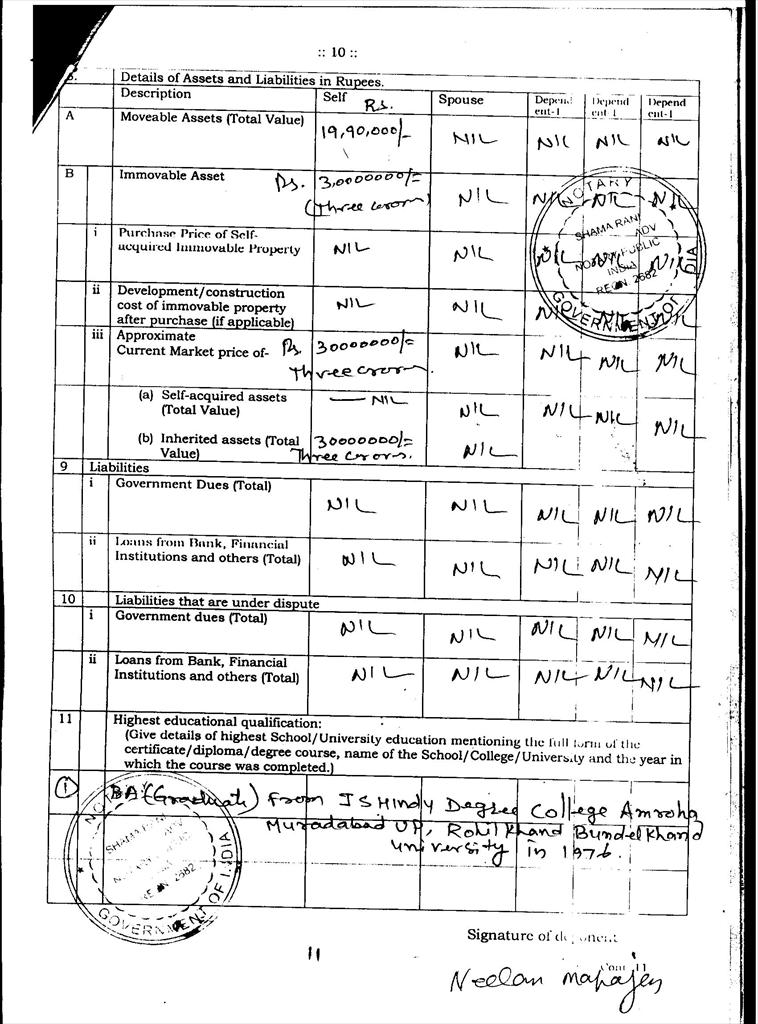 :: 10 ::
Details of Assets and Liabilities in Rupees.
Description Self Rs. Spouse Depend ent-1 Depend ent-1 Depend ent-1
A Moveable Assets (Total Value) 19,90,000/- NIL NIL NIL NIL
B Immovable Asset Rs. 3,0000000/= NIL NIL NIL NIL
i Purchase Price of Self-
acquired Immovable Property NIL NIL NIL NIL NIL
ii Development/construction
cost of immovable property NIL NIL NIL NIL NIL
after purchase (if applicable)
iii Approximate
Current Market price of- Rs. 30000000/= NIL NIL NIL NIL
(a) Self-acquired assets — NIL
(Total Value) NIL NIL NIL NIL
(b) Inherited assets (Total 30000000/= NIL
Value)
9 Liabilities
i Government Dues (Total) NIL NIL NIL NIL NIL
ii Loans from Bank, Financial
Institutions and others (Total) NIL NIL NIL NIL NIL
10 Liabilities that are under dispute
i Government dues (Total) NIL NIL NIL NIL NIL
ii Loans from Bank, Financial
Institutions and others (Total) NIL NIL NIL NIL NIL
11 Highest educational qualification:
(Give details of highest School/University education mentioning the full form of the
certificate/diploma/degree course, name of the School/College/University and the year in
which the course was completed.)
1 BA (Graduate) From JSHindy Degree College Amroha
Muradabad UP, Rohil Khand Bundel Khand
University in 1976.
NOTARY
SHAMA RANI
ADV
NOTARY PUBLIC
INDIA
REGN. 2682
GOVERNMENT OF INDIA
NOTARY
SHAMA RANI
ADV
REGN. 2682
GOVERNMENT OF INDIA
Signature of deponent
11
Cont 11